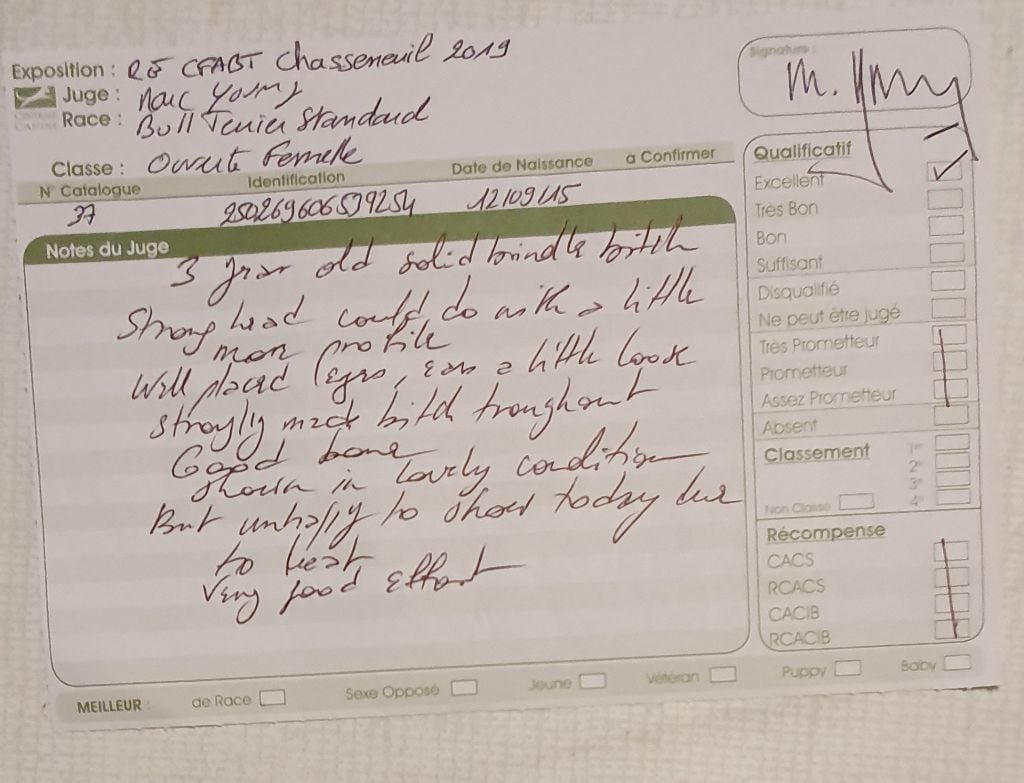 Exposition : RE CFABT Chasseneuil 2019
Juge : Marc Young
Race : Bull Terrier Standard
Classe : Ouverte Femelle
N° Catalogue Identification Date de Naissance à Confirmer
37 250269606599254 12/09/15
Notes du Juge
3 year old solid brindle bitch
Strong head could do with a little
more profile
Well placed eyes, ears a little loose
strongly made bitch troughout
Good bone
shown in lovely condition
But unhappy to show today due
to heat
Very good effort
Signature :
M. Young
Qualificatif
Excellent ✓
Très Bon
Bon
Suffisant
Disqualifié
Ne peut être jugé
Très Prometteur
Prometteur
Assez Prometteur
Absent
Classement 1er
2e
3e
4e
Non Classé
Récompense
CACS
RCACS
CACIB
RCACIB
MEILLEUR : de Race Sexe Opposé Jeune Vétéran Puppy Baby